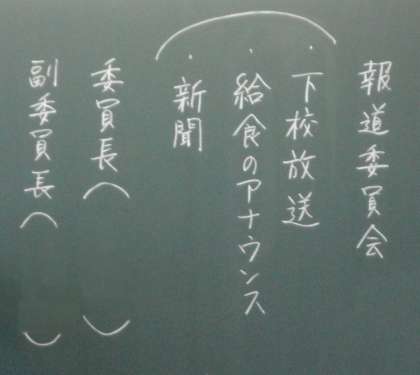 報道委員会
・下校放送
・給食のアナウンス
・新聞
委員長（　　　）
副委員長（　　　）